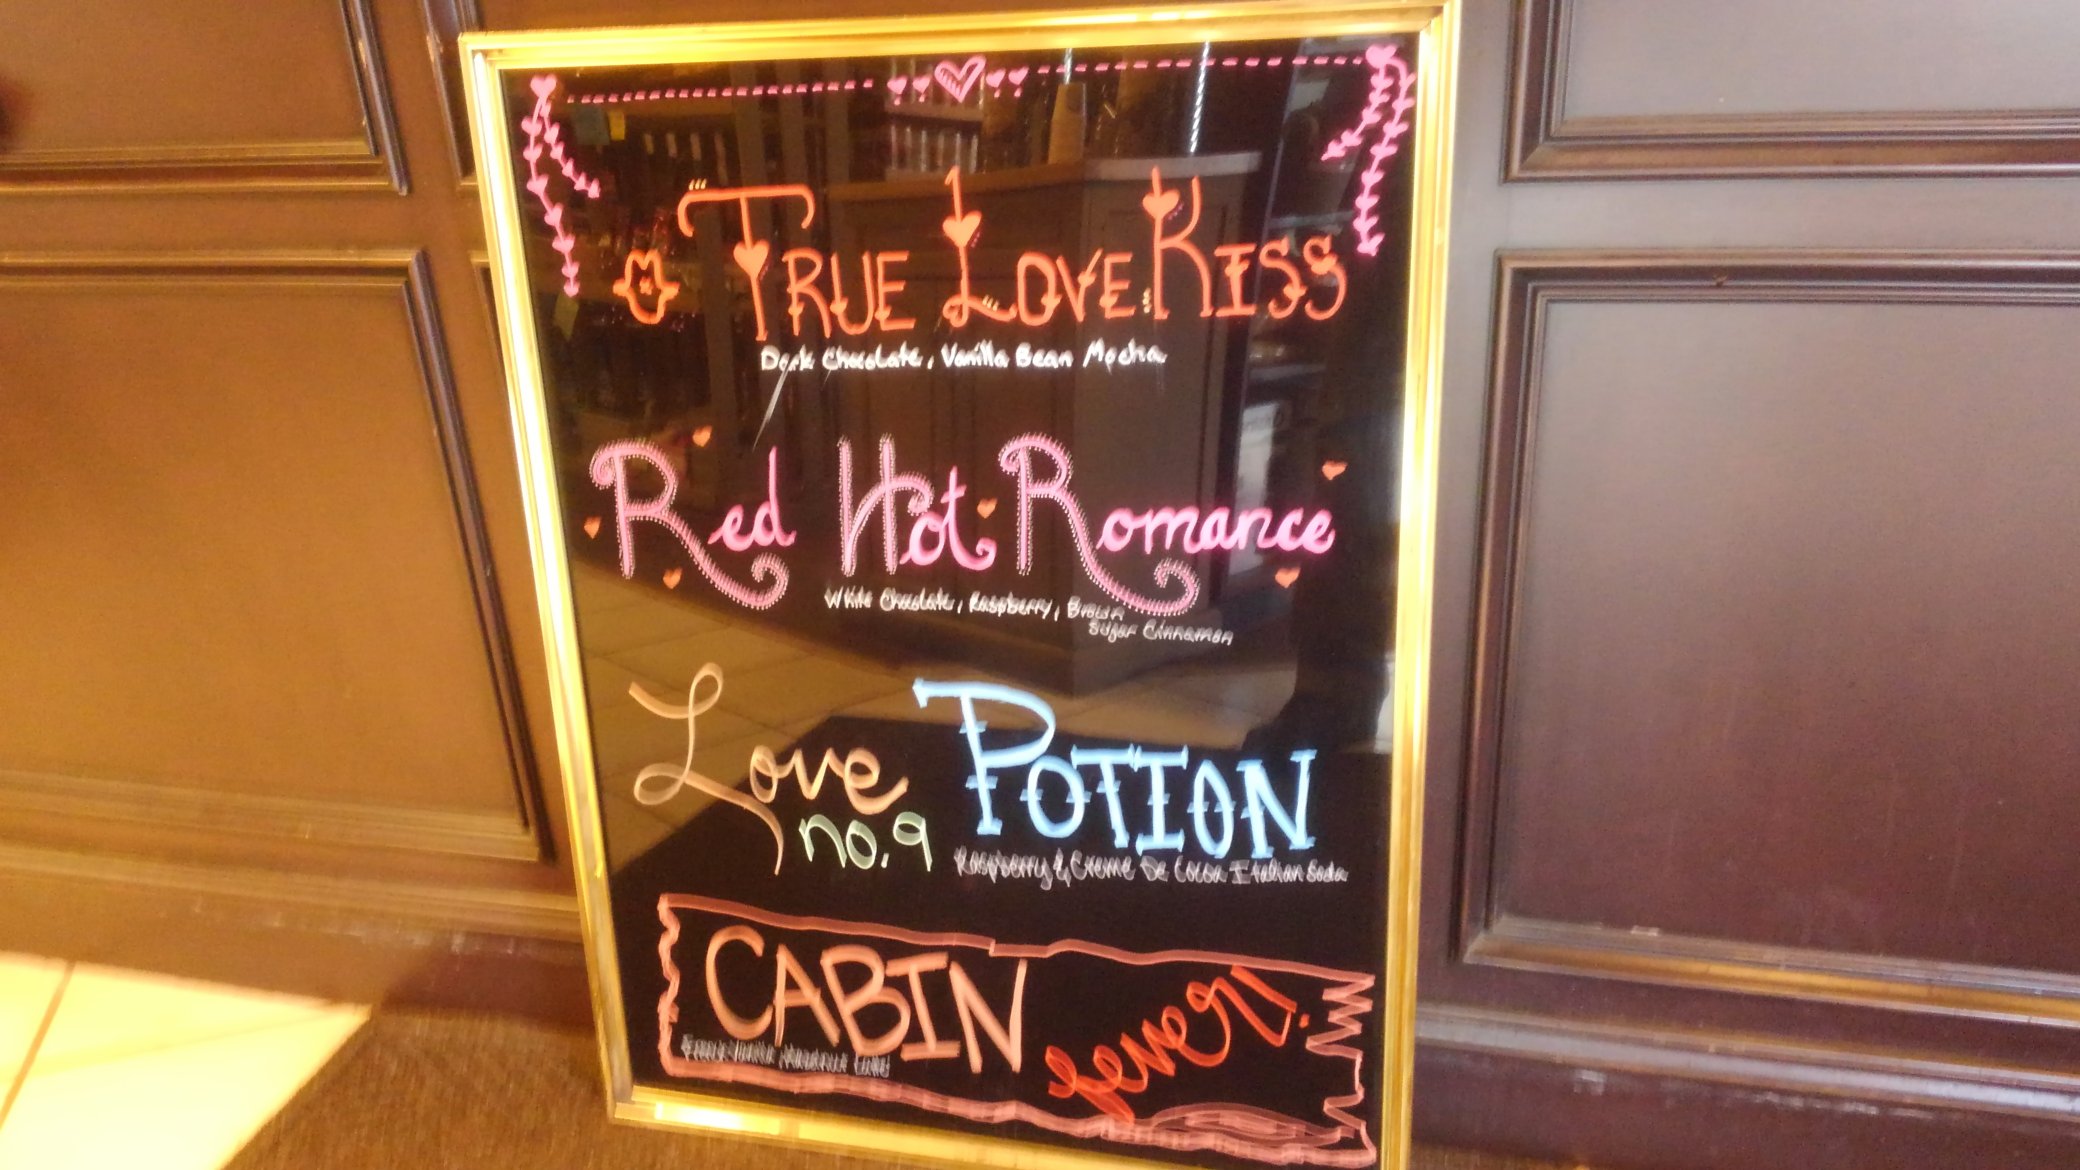 True Love Kiss
Dark Chocolate, Vanilla Bean Mocha
Red Hot Romance
White Chocolate, Raspberry, Brown
Sugar Cinnamon
Love Potion
no. 9
Raspberry & Creme De Cocoa Italian Soda
CABIN
fever!